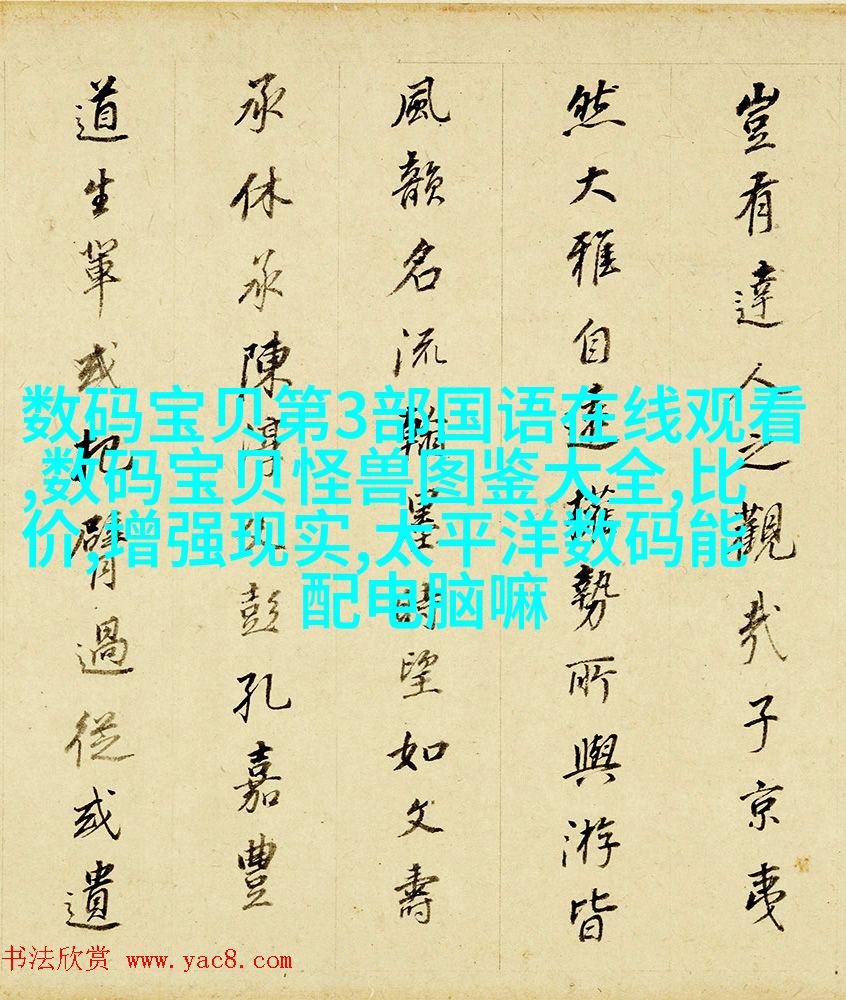 豈有達人之觀哉子京夷
然大雅自遠權勢所與游皆
風韻名流翰墨時望如文壽
承休承陳淳父彭孔嘉豐
道生輩或把臂過從或遺
数码宝贝第3部国语在线观看
,数码宝贝怪兽图鉴大全,比
价,增强现实,太平洋数码能
配电脑嘛
书法欣赏 www.yac8.com